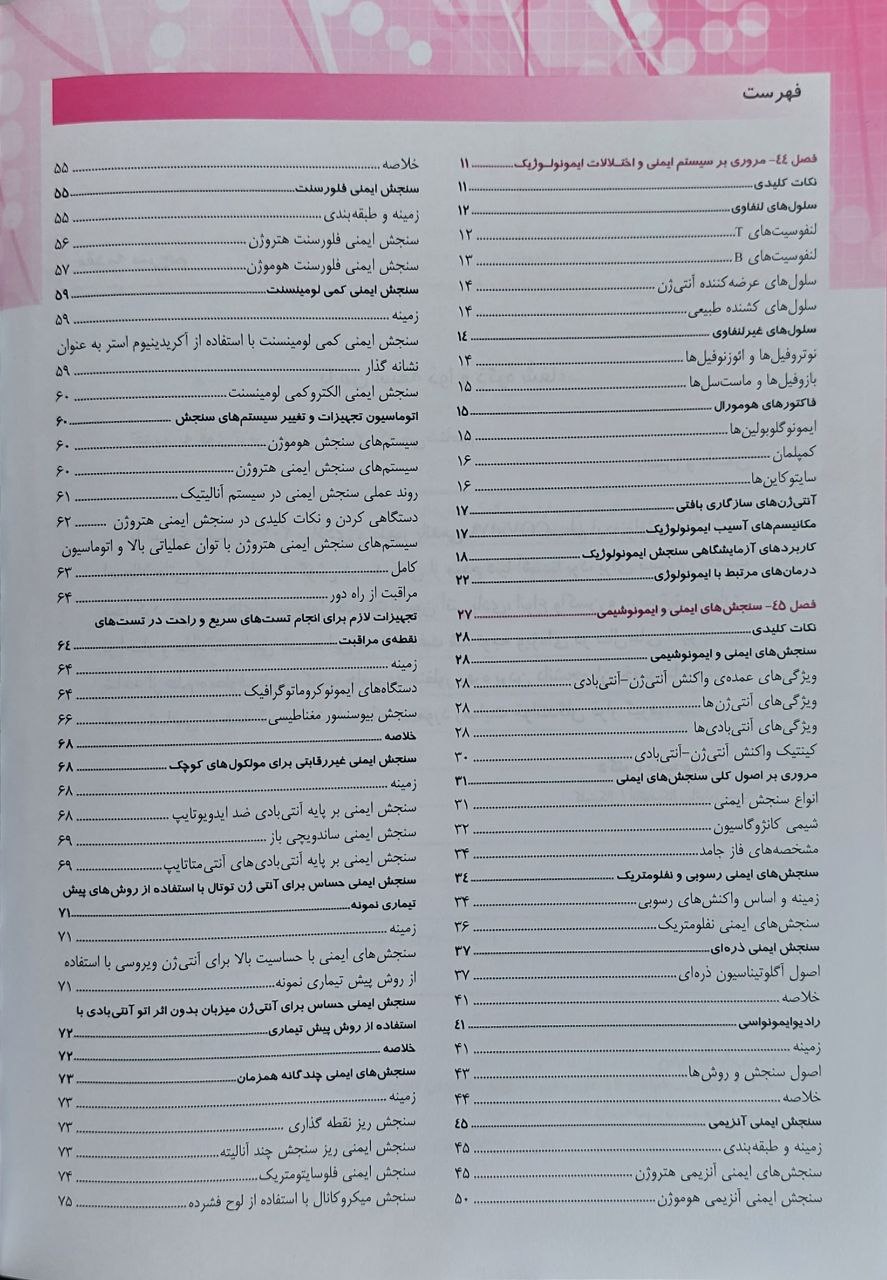 فهرست
فصل ٤٤- مروری بر سیستم ایمنی و اختلالات ایمونولوژیک ۱۱
نکات کلیدی ۱۱
سلول‌های لنفاوی ۱۲
لنفوسیت‌های T ۱۲
لنفوسیت‌های B ۱۳
سلول‌های عرضه‌کننده آنتی‌ژن ۱۴
سلول‌های کشنده طبیعی ۱۴
سلول‌های غیرلنفاوی ۱٤
نوتروفیل‌ها و ائوزنوفیل‌ها ۱۴
بازوفیل‌ها و ماست‌سل‌ها ۱۵
فاکتورهای هومورال ۱۵
ایمونوگلوبولین‌ها ۱۵
کمپلمان ۱۶
سایتوکاین‌ها ۱۶
آنتی‌ژن‌های سازگاری بافتی ۱۷
مکانیسم‌های آسیب ایمونولوژیک ۱۷
کاربردهای آزمایشگاهی سنجش ایمونولوژیک ۱۸
درمان‌های مرتبط با ایمونولوژی ۲۲
فصل ٤۵- سنجش‌های ایمنی و ایمونوشیمی ۲۷
نکات کلیدی ۲۸
سنجش‌های ایمنی و ایمونوشیمی ۲۸
ویژگی‌های عمده‌ی واکنش آنتی‌ژن-آنتی‌بادی ۲۸
ویژگی‌های آنتی‌ژن‌ها ۲۸
ویژگی‌های آنتی‌بادی‌ها ۲۸
کینتیک واکنش آنتی‌ژن-آنتی‌بادی ۳۰
مروری بر اصول کلی سنجش‌های ایمنی ۳۱
انواع سنجش ایمنی ۳۱
شیمی کانژوگاسیون ۳۲
مشخصه‌های فاز جامد ۳۴
سنجش‌های ایمنی رسوبی و نفلومتریک ۳٤
زمینه و اساس واکنش‌های رسوبی ۳۴
سنجش‌های ایمنی نفلومتریک ۳۶
سنجش ایمنی ذره‌ای ۳۷
اصول آگلوتیناسیون ذره‌ای ۳۷
خلاصه ۴۱
رادیوایمونواسی ٤۱
زمینه ۴۱
اصول سنجش و روش‌ها ۴۳
خلاصه ۴۴
سنجش ایمنی آنزیمی ٤۵
زمینه و طبقه‌بندی ۴۵
سنجش‌های ایمنی آنزیمی هتروژن ۴۵
سنجش ایمنی آنزیمی هوموژن ۵۰
خلاصه ۵۵
سنجش ایمنی فلورسنت ۵۵
زمینه و طبقه‌بندی ۵۵
سنجش ایمنی فلورسنت هتروژن ۵۶
سنجش ایمنی فلورسنت هوموژن ۵۷
سنجش ایمنی کمی لومینسنت ۵۹
زمینه ۵۹
سنجش ایمنی کمی لومینسنت با استفاده از آکریدینیوم استر به عنوان
نشانه گذار ۵۹
سنجش ایمنی الکتروکمی لومینسنت ۶۰
اتوماسیون تجهیزات و تغییر سیستم‌های سنجش ۶۰
سیستم‌های سنجش هوموژن ۶۰
سیستم‌های سنجش ایمنی هتروژن ۶۰
روند عملی سنجش ایمنی در سیستم آنالیتیک ۶۱
دستگاهی کردن و نکات کلیدی در سنجش ایمنی هتروژن ۶۲
سیستم‌های سنجش ایمنی هتروژن با توان عملیاتی بالا و اتوماسیون
کامل ۶۳
مراقبت از راه دور ۶۴
تجهیزات لازم برای انجام تست‌های سریع و راحت در تست‌های
نقطه‌ی مراقبت ۶٤
زمینه ۶۴
دستگاه‌های ایمونوکروماتوگرافیک ۶۴
سنجش بیوسنسور مغناطیسی ۶۶
خلاصه ۶۸
سنجش ایمنی غیررقابتی برای مولکول‌های کوچک ۶۸
زمینه ۶۸
سنجش ایمنی بر پایه آنتی‌بادی ضد ایدیوتایپ ۶۸
سنجش ایمنی ساندویچی باز ۶۹
سنجش ایمنی بر پایه آنتی‌بادی‌های آنتی‌متاتایپ ۶۹
سنجش ایمنی حساس برای آنتی ژن توتال با استفاده از روش‌های پیش
تیماری نمونه ۷۱
زمینه ۷۱
سنجش‌های ایمنی با حساسیت بالا برای آنتی‌ژن ویروسی با استفاده
از روش پیش تیماری نمونه ۷۱
سنجش ایمنی حساس برای آنتی‌ژن میزبان بدون اثر اتو آنتی‌بادی با
استفاده از روش پیش تیماری ۷۲
خلاصه ۷۲
سنجش‌های ایمنی چندگانه همزمان ۷۳
زمینه ۷۳
سنجش ریز نقطه گذاری ۷۳
سنجش ایمنی ریز سنجش چند آنالیته ۷۳
سنجش ایمنی فلوسایتومتریک ۷۴
سنجش میکروکانال با استفاده از لوح فشرده ۷۵